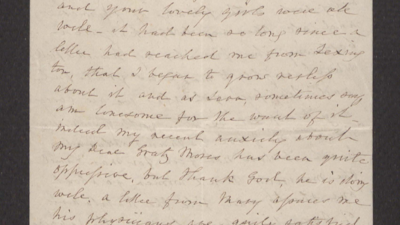 and your lovely girls were all
well - it had been so long since a
letter had reached me from Lexing
ton, that I began to grow restless
about it and as Sera, sometimes says
am lonesome for the want of it -
indeed my recent anxiety about
my dear Gratz Moses has been quite
oppressive, but thank God, he is doing
well, a letter from Mary assures me
his physicians are quite satisfied